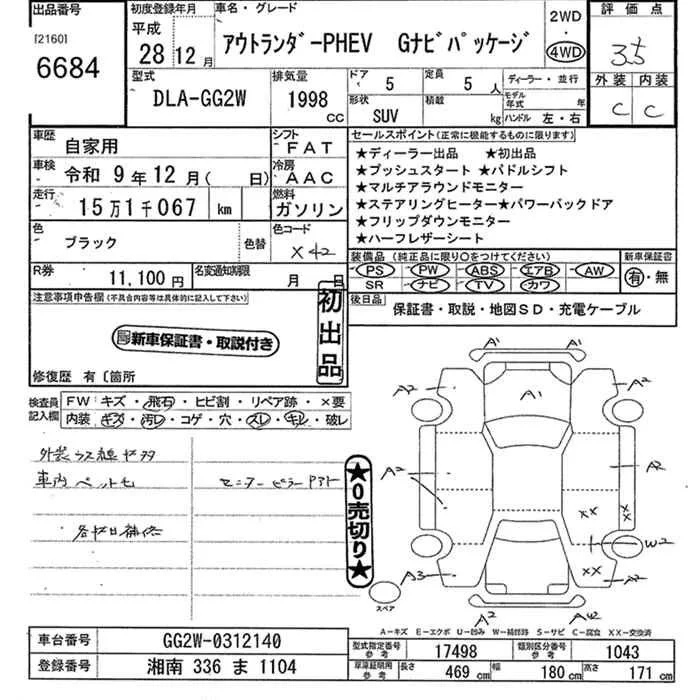 出品番号
[2160]
6684
初度登録年月
平成
28年12月
車名・グレード
アウトランダーPHEV Gナビパッケージ
2WD
・
4WD
評価点
3.5
外装 内装
C C
型式
DLA-GG2W
排気量
1998 CC
ドア
5
定員
5人
形状
SUV
積載
kg
ディーラー・並行
モデル年式 年
ハンドル 左・右
車歴
自家用
シフト
FAT
車検
令和 9年 12月( 日)
冷房
AAC
走行
15万1千067 km
燃料
ガソリン
色
ブラック
色替
色コード
X42
R券
11,100円
名変通知期限
月 日
セールスポイント(正常に機能するものに限ります)
★ディーラー出品 ★初出品
★プッシュスタート ★パドルシフト
★マルチアラウンドモニター
★ステアリングヒーター★パワーバックドア
★フリップダウンモニター
★ハーフレザーシート
装備品(純正品に限り○をつけてください)
PS PW ABS エアB AW
SR ナビ TV カワ
新車保証書
有・無
後日品
保証書・取説・地図SD・充電ケーブル
注意事項申告欄(不具合内容等は具体的に記入して下さい)
新車保証書・取説付き
初出品
修復歴 有〔箇所
検査員記入欄
FW キズ・飛石・ヒビ割・リペア跡・×要
内装 キズ・汚レ・コゲ・穴・スレ・キレ・破レ
外装ウス線キズ
車内ペット毛
センターピラーアト
★0売切り★
A1 A1
A2 A1 A2
A2 A2
XX XX
W2
A3 XX A2
A2 AW2
スペア
A-キズ E-エクボ U-凹み W-補修跡 S-サビ C-腐食 XX-交換済
車台番号
GG2W-0312140
登録番号
湘南 336 ま 1104
型式指定番号 参考
17498
類別区分番号 参考
1043
車庫証明用 参考
長さ 469 cm
幅 180 cm
高さ 171 cm